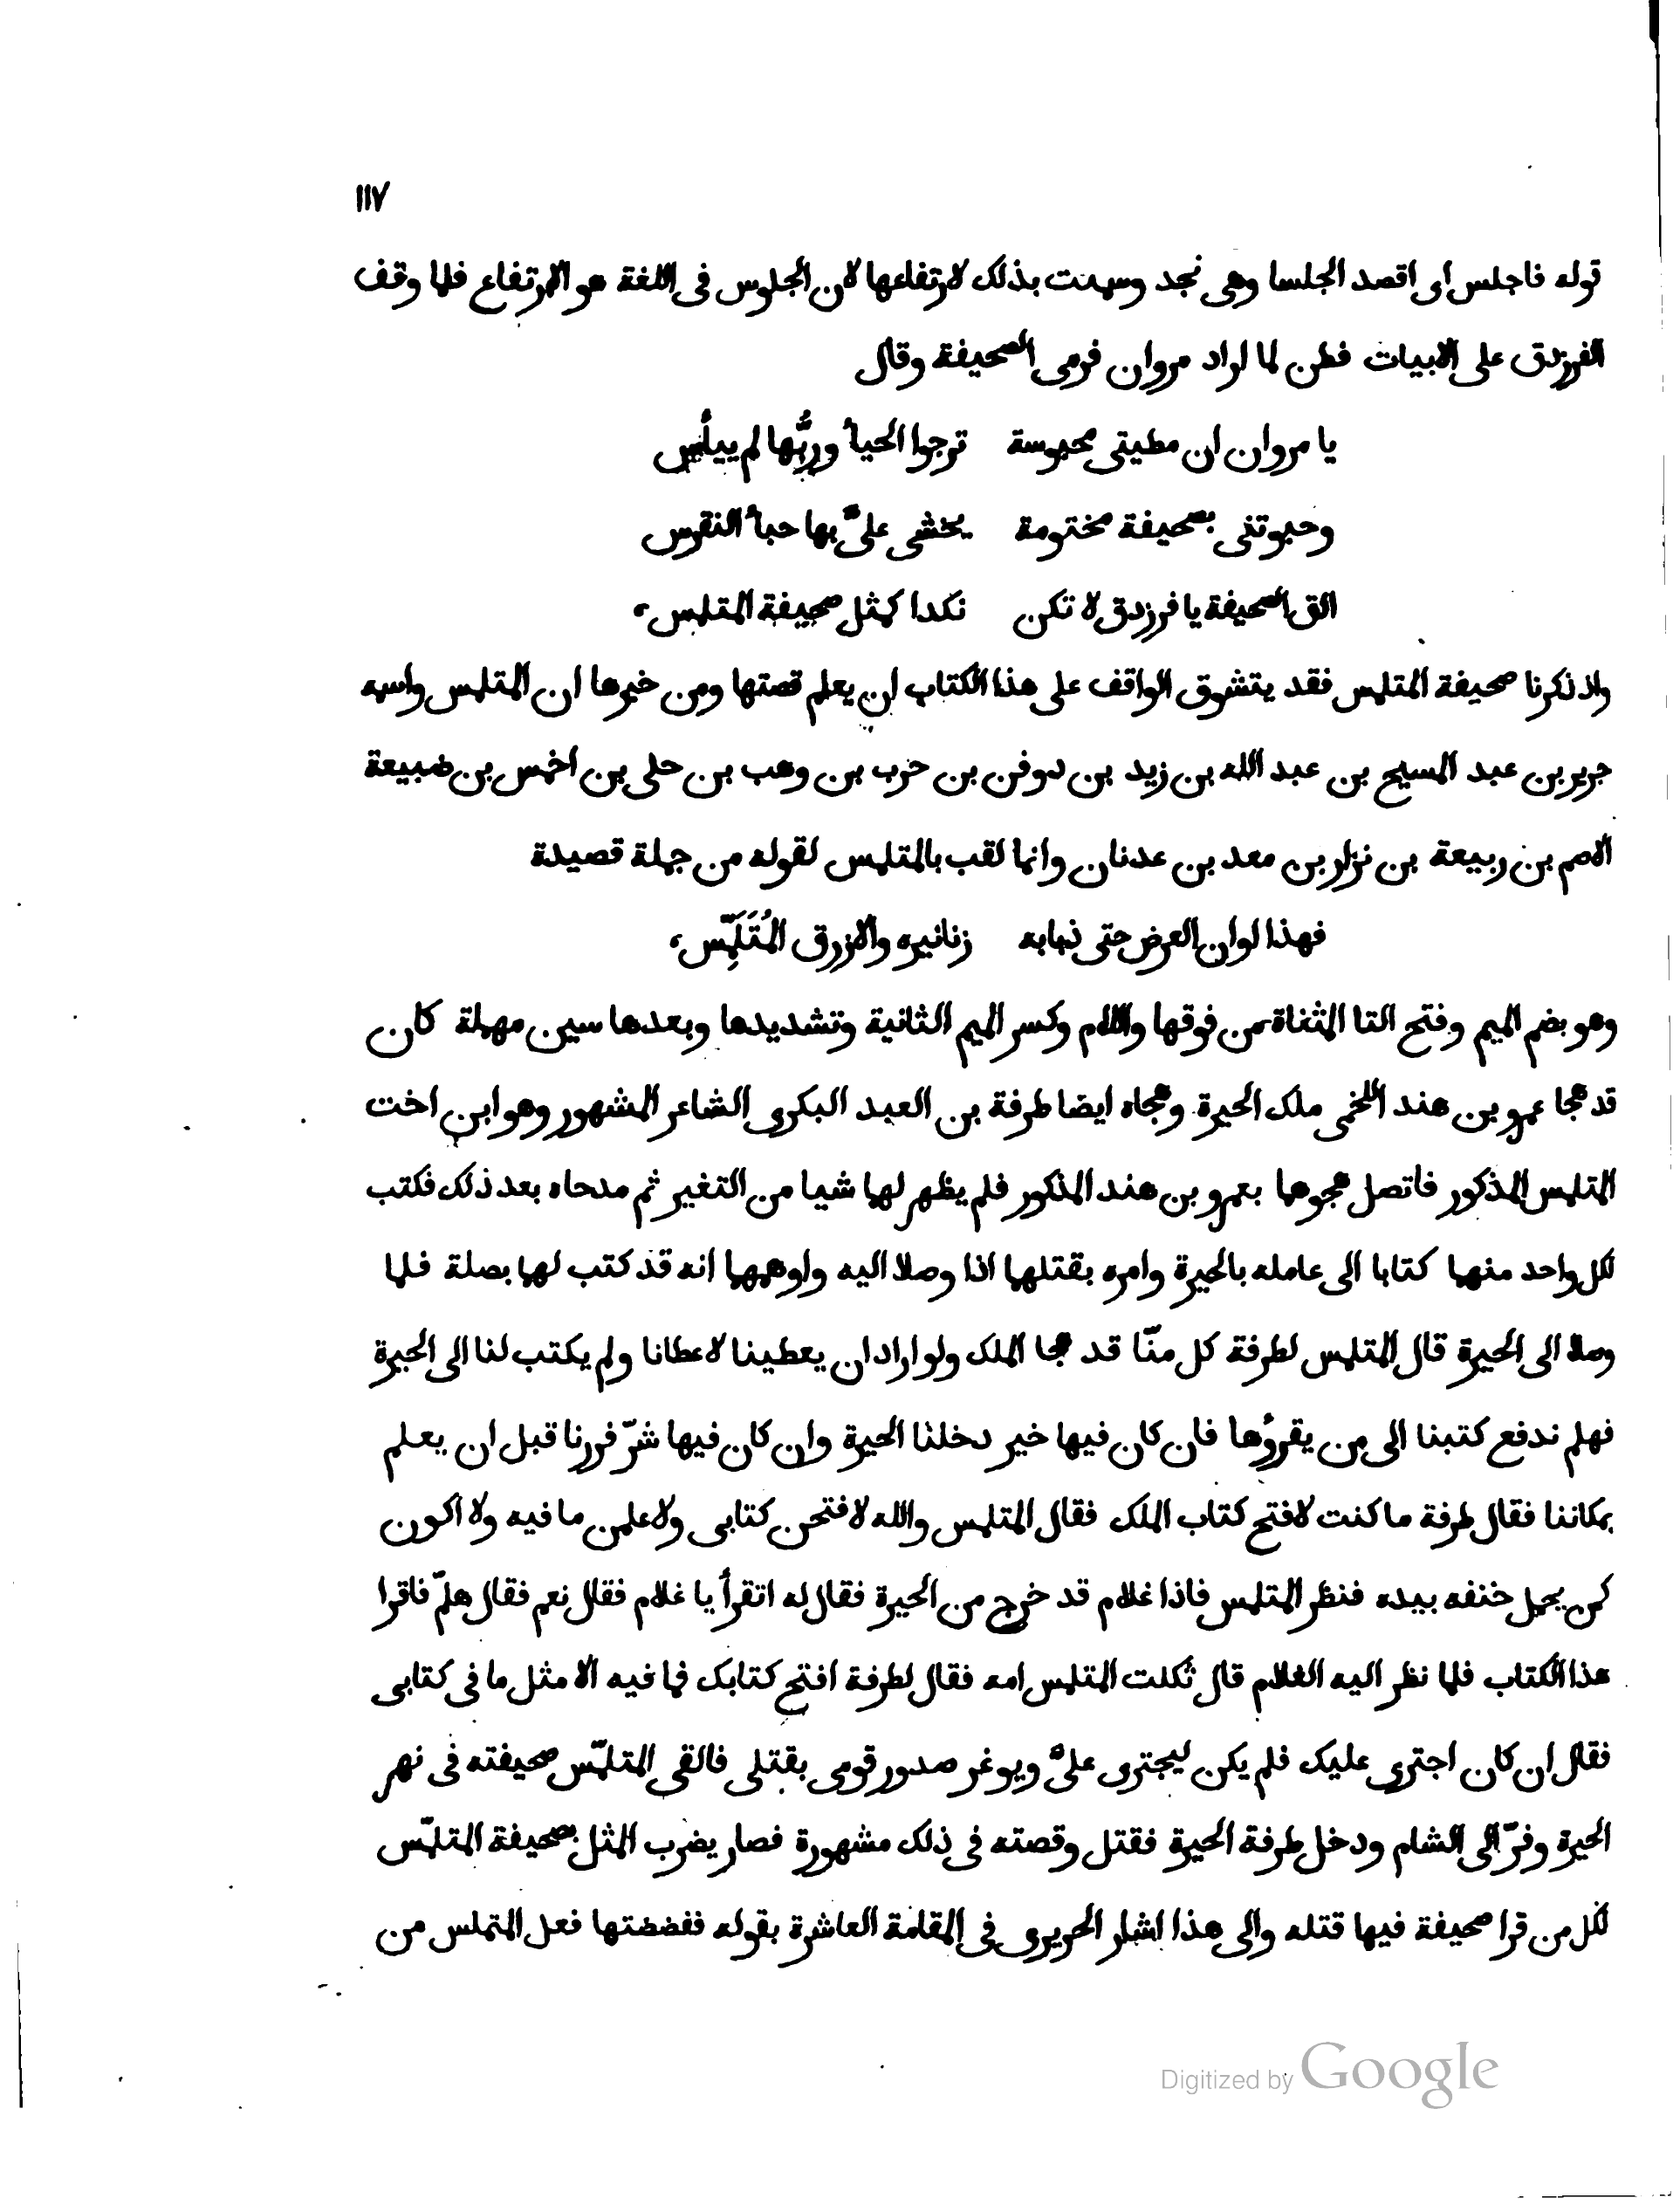 ١١٧
قوله فاجلس اى اقصد الجلسا وهى نجد وسميت بذلك لارتفاعها لان الجلوس فى اللغة هو الارتفاع فلما وقف
الفرزدق على الابيات فطن لما اراد مروان فرمى الصحيفة وقال
يا مروان ان مطيتى محبوسة ترجوا الحباء وربُّها لم ييأس
وحبوتنى بصحيفة مختومة يخشى علىّ بها حباء النقرس
الق الصحيفة يا فرزدق لا تكن نكدا كمثل صحيفة المتلمس،
واذ ذكرنا صحيفة المتلمس فقد يتشوق الواقف على هذا الكتاب ان يعلم قصتها ومن خبرها ان المتلمس واسمه
جرير بن عبد المسيح بن عبد الله بن زيد بن دوفن بن حرب بن وهب بن حلى بن اخمس بن ضبيعة
الاصم بن ربيعة بن نزار بن معد بن عدنان وانما لقب بالمتلمس لقوله من جملة قصيدة
فهذا اوان العرض حتى ذبابه زنانيره والازرق المُتَلَمِّس،
وهو بضم الميم وفتح التا المثناة من فوقها واللام وكسر الميم الثانية وتشديدها وبعدها سين مهملة كان
قد هجا عمرو بن هند اللخمى ملك الحيرة وهجاه ايضا طرفة بن العبد البكرى الشاعر المشهور وهو ابن اخت
المتلمس المذكور فاتصل هجوهما بعمرو بن هند المذكور فلم يظهر لهما شيا من التغير ثم مدحاه بعد ذلك فكتب
لكل واحد منهما كتابا الى عامله بالحيرة وامره بقتلهما اذا وصلا اليه واوهمهما انه قد كتب لهما بصلة فلما
وصلا الى الحيرة قال المتلمس لطرفة كل منّا قد هجا الملك ولو اراد ان يعطينا لاعطانا ولم يكتب لنا الى الحيرة
فهلم ندفع كتبنا الى من يقرؤُها فان كان فيها خير دخلنا الحيرة وان كان فيها شرّ فررنا قبل ان يعلم
بمكاننا فقال طرفة ما كنت لافتح كتاب الملك فقال المتلمس والله لافتحن كتابى ولاعلمن ما فيه ولا اكون
كمن يحمل خنفه بيده فنظر المتلمس فاذا غلام قد خرج من الحيرة فقال له اتقرأ يا غلام فقال نعم فقال هلمّ فاقرا
هذا الكتاب فلما نظر اليه الغلام قال ثكلت المتلمس امه فقال لطرفة افتح كتابك فما فيه الا مثل ما فى كتابى
فقال ان كان اجترى عليك فلم يكن ليجترى علىّ ويوغر صدور قومى بقتلى فالقى المتلمّس صحيفته فى نهر
الحيرة وفرّ الى الشام ودخل طرفة الحيرة فقتل وقصته فى ذلك مشهورة فصار يضرب المثل بصحيفة المتلمّس
لكل من قرا صحيفة فيها قتله والى هذا اشار الحريرى فى المقامة العاشرة بقوله ففضضتها فعل المتملس من
Digitized by Google